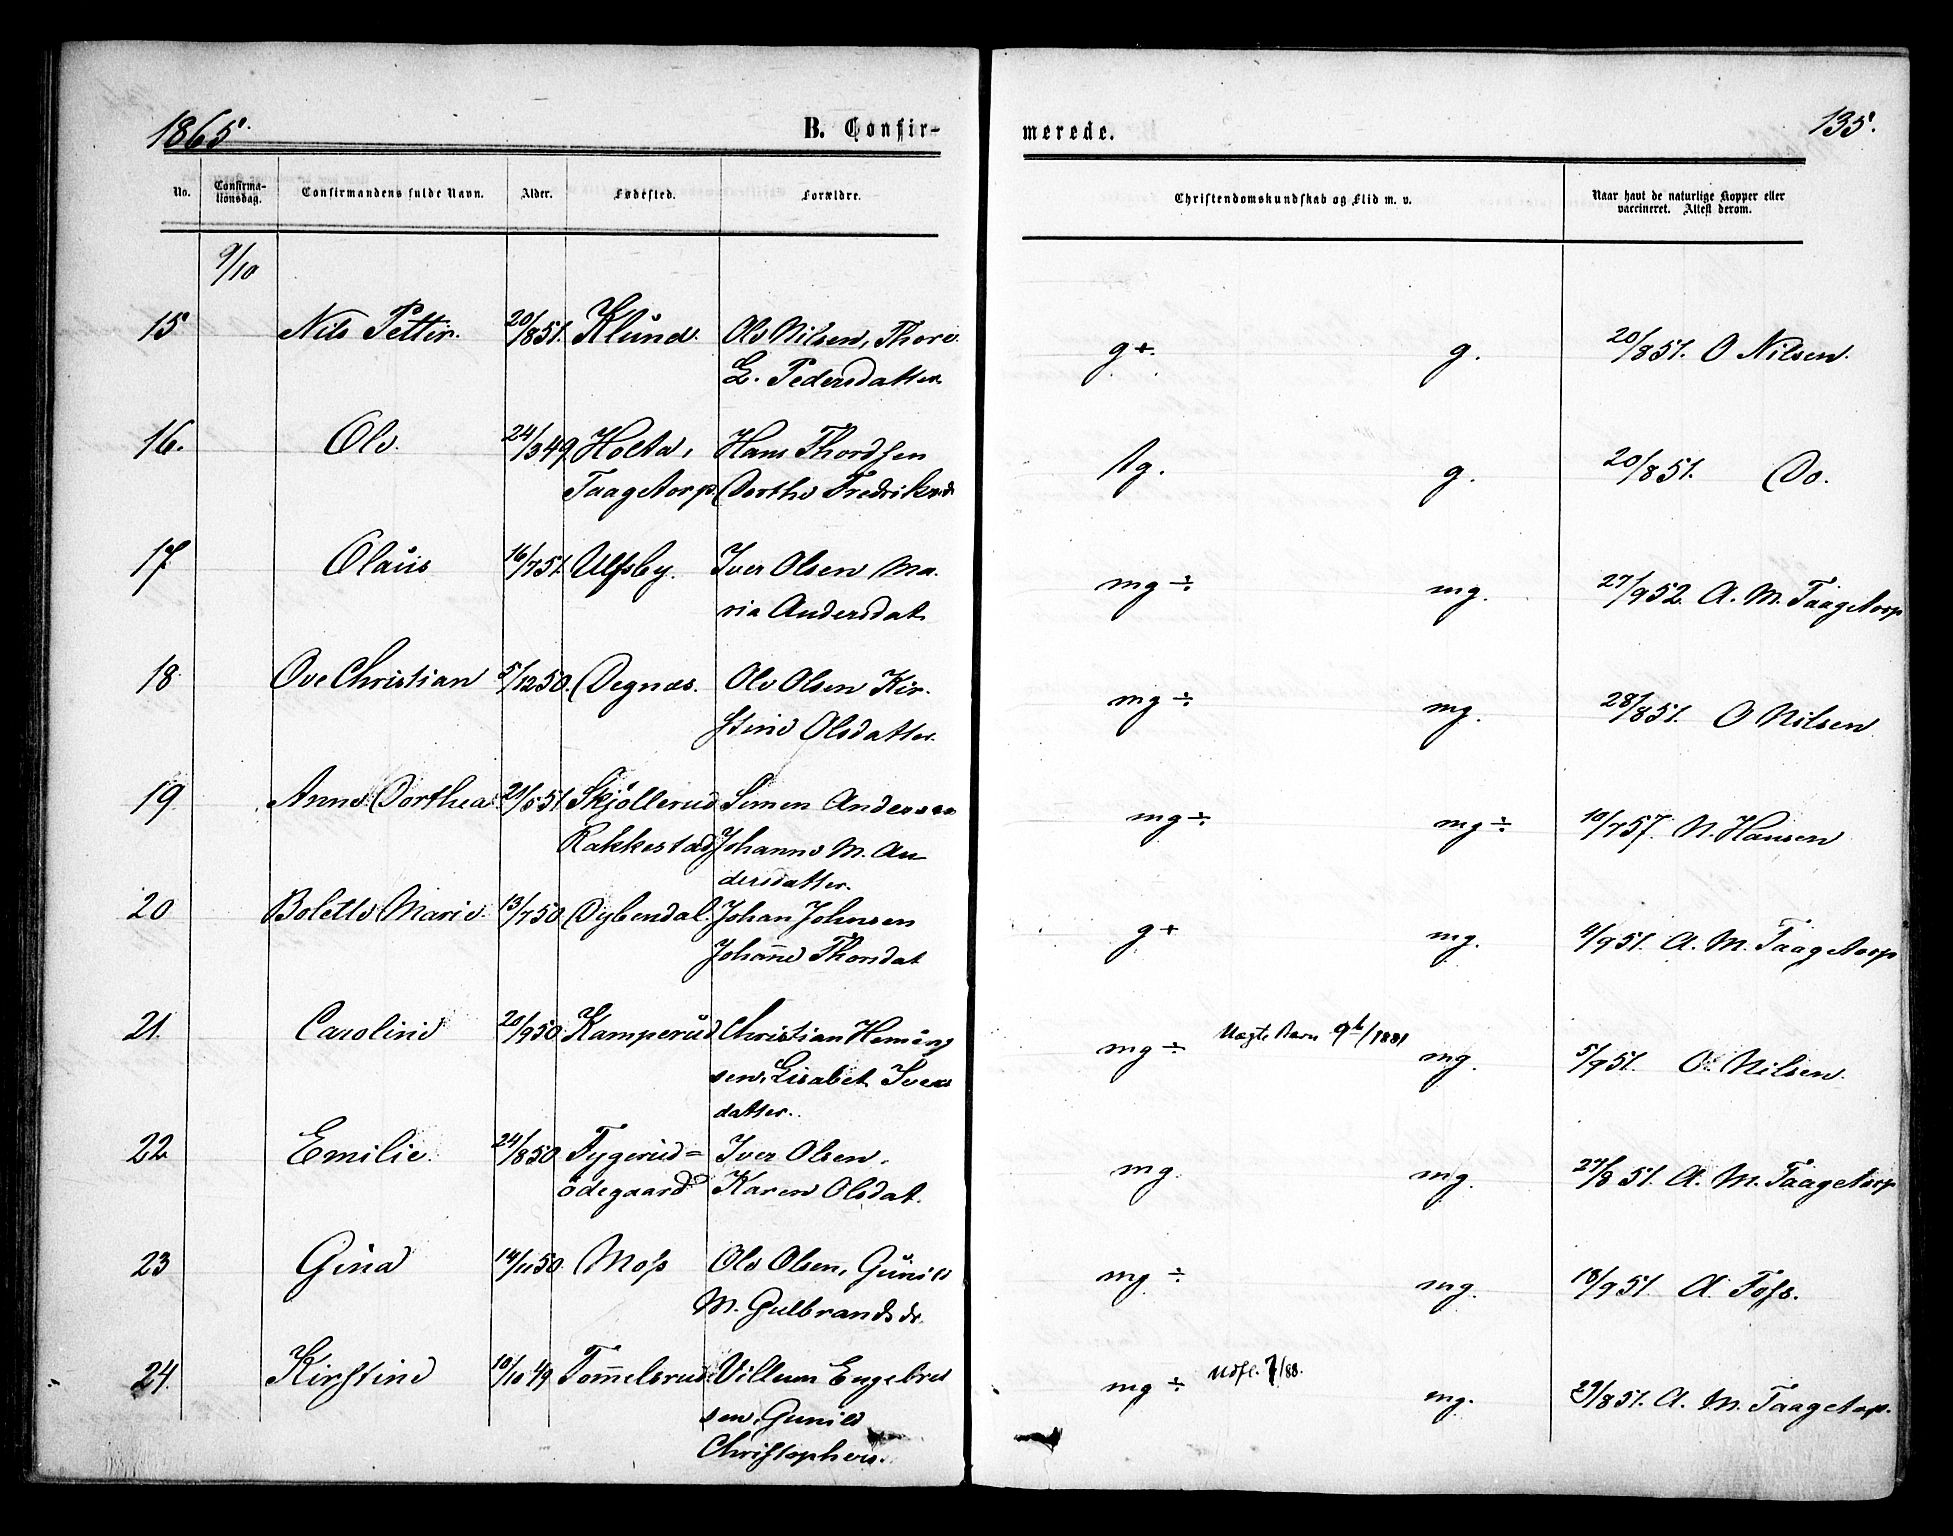 1865.
B. Confir-
merede.
135.
No.
Confirma-
tionsdag.
Confirmandens fulde Navn.
Alder.
Fødested.
Forældre.
Christendomskundskab og Flid m. v.
Naar havt de naturlige Kopper eller
vaccineret. Attest derom.
9/10
15 Nils Petter. 20/8 51. Klund. Ole Nilsen, Thore g+. g. 20/8 51. O Nilsen.
L. Pedersdatter
16. Ole. 24/3 49 Holta, Hans Thordsen tg. g. 20/8 51. Do.
Taagetorp Dorthe Fredriksd
17 Olaus 16/7 51. Ulfsby. Iver Olsen Ma- mg ÷ mg. 27/9 52. A. M. Taagetorp
ria Andersdat.
18 Ove Christian 5/12 50. Degnæs. Ole Olsen Kir- mg ÷ mg. 28/8 51. O Nilsen
stine Olsdatter.
19 Anne Dorthea 21/5 51. Skjøllerud Simen Andersen mg ÷ mg ÷ 10/7 57. N. Hansen
Rakkestad Johanne M. An-
dersdatter.
20 Bolette Marie. 13/7 50. Dybendal. Johan Johnsen g+ mg. 4/9 51. A. M. Taagetorp
Johan̄e Thorsdat
21. Caroline 20/9 50 Kamperud Christian Heming mg ÷ Uægte Barn 9b/1881 mg. 5/9 51. O. Nilsen.
sen, Lisabet Ivers
datter.
22 Emilie. 24/8 50 Tygerud= Iver Olsen. mg. mg. 27/8 51. A. M. Taagetorp
ødegaard Karen Olsdat.
23 Gina 14/11 50. Moss Ole Olsen, Gunild mg ÷ mg. 18/9 51. A. Foss.
M. Gulbrandsdr.
24. Kirstine 10/10 49 Tom̄elsrud Villum Engebret mg ÷ Udfl. 7/88. mg. 29/8 51. A. M. Taagetorp.
sen, Gunild
Christophers.